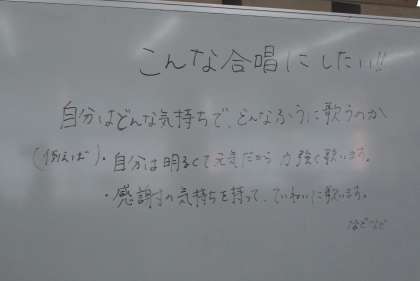 こんな合唱にしたい!!
自分はどんな気持ちで、どんなふうに歌うのか
(例えば)・自分は明るくて元気だから力強く歌います。
・感謝の気持ちを持って、ていねいに歌います。
などなど